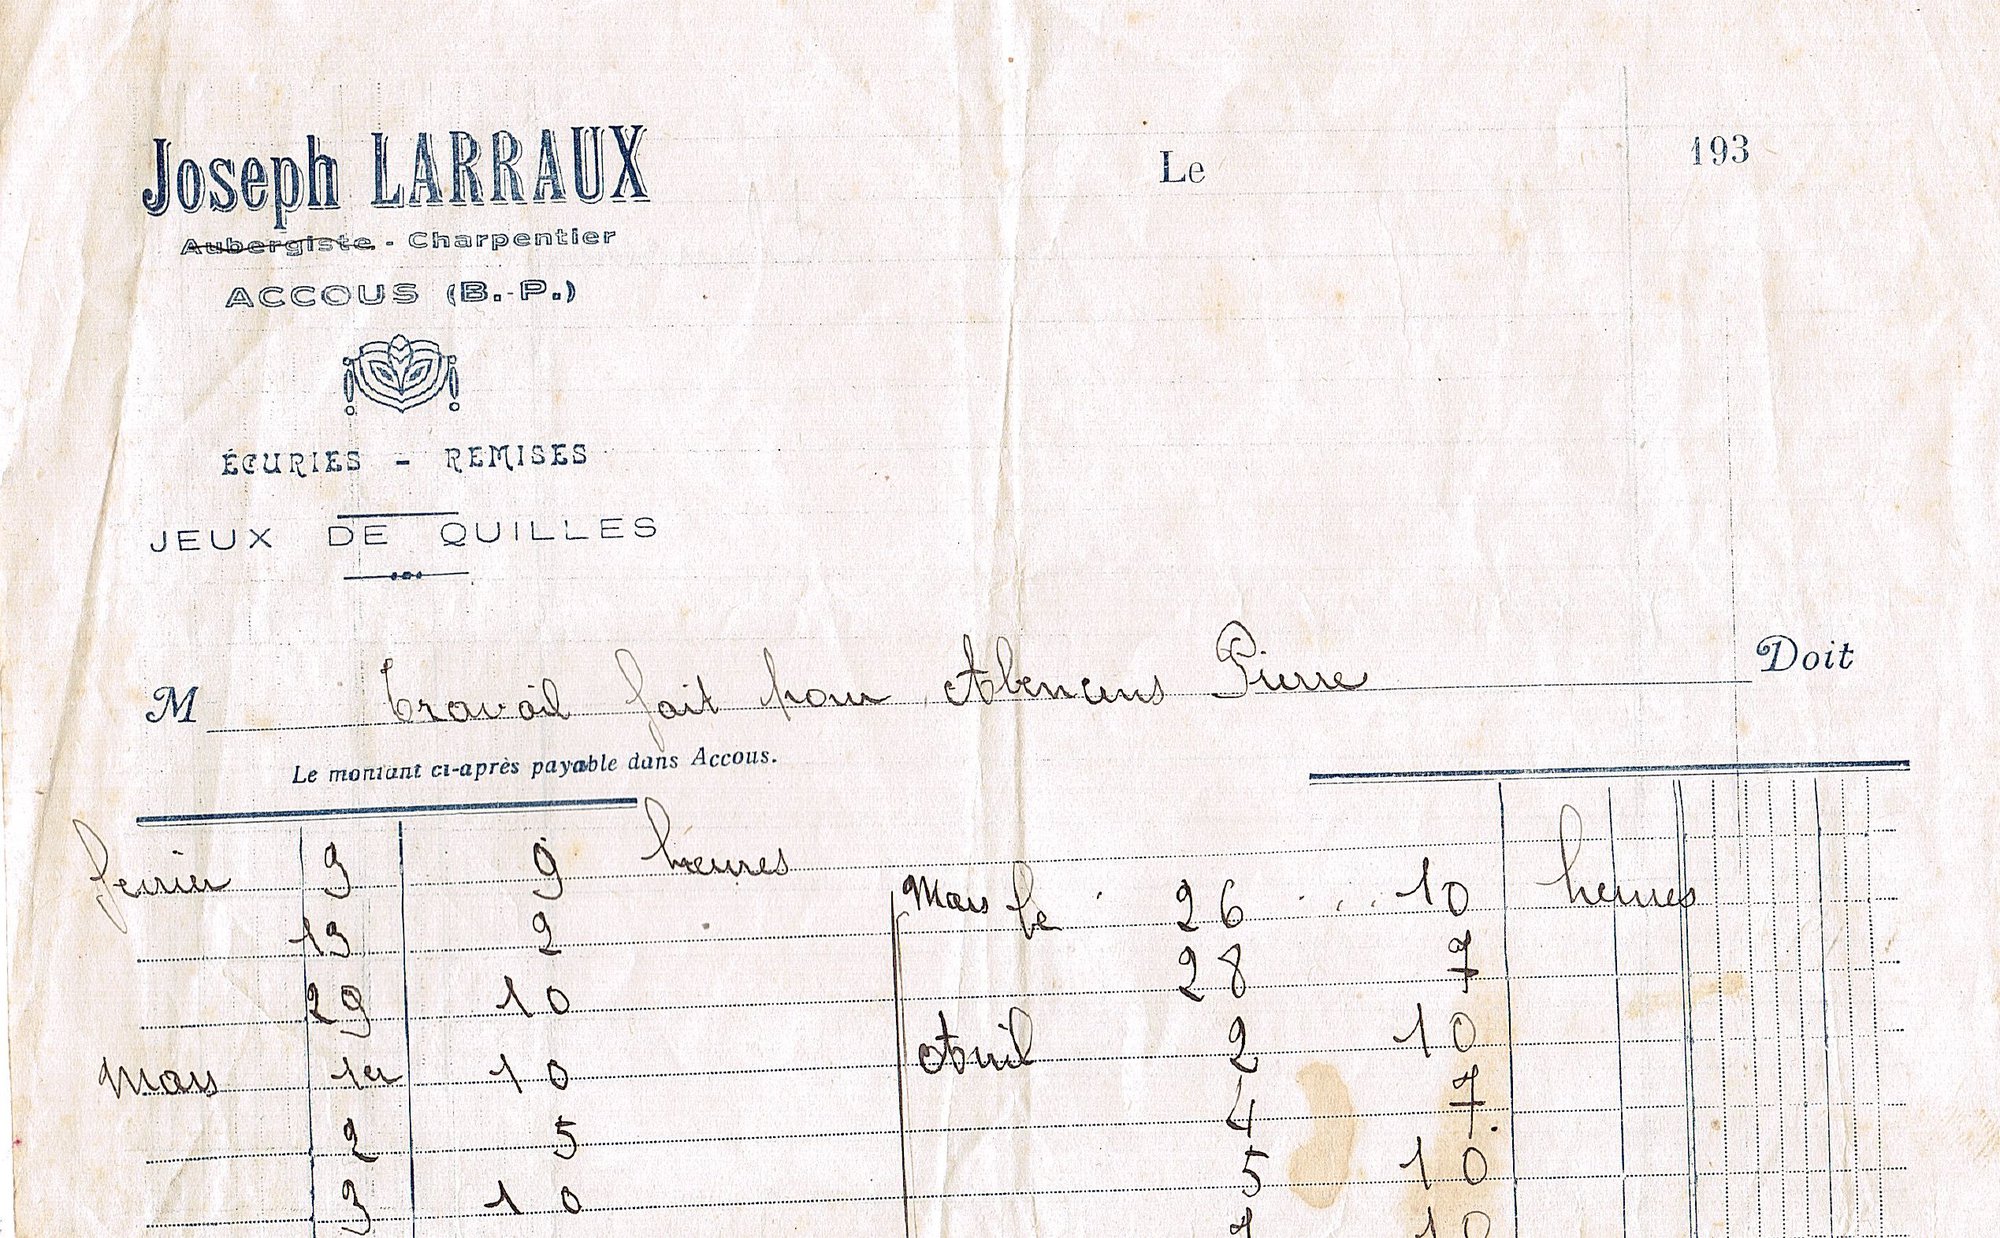 Joseph LARRAUX
Aubergiste - Charpentier
ACCOUS (B.-P.)
ÉCURIES - REMISES
JEUX DE QUILLES
Le 193
M Travail fait pour Abencens Pierre Doit
Le montant ci-après payable dans Accous.
fevrier 3 9 heures
13 2
29 10
Mars 1er 10
2 5
3 10
Mars le 26 10 heures
28 7
Avril 2 10
4 7.
5 10
7 10